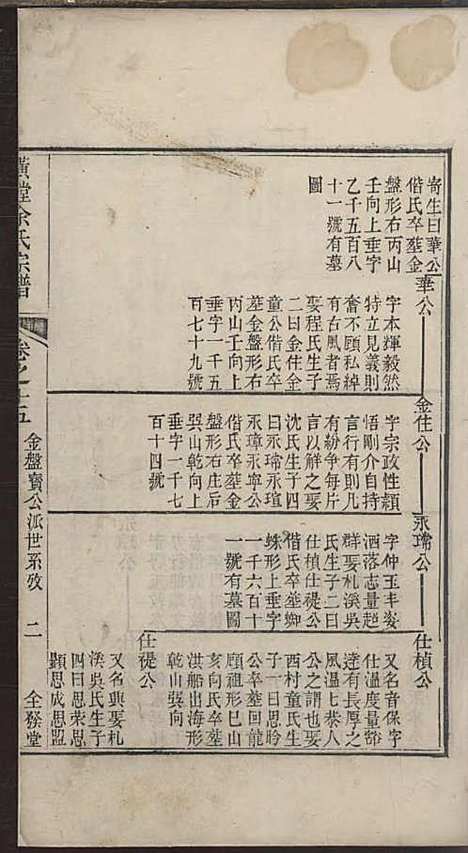 寄生曰華公
偕氏卒塟金
盤形右丙山
壬向上垂字
乙千五百八
十一號有墓
圖
華公
字本輝毅然
特立見義則
奮不顧私綽
有古風者焉
娶程氏生子
二曰金住金
童公偕氏卒
塟金盤形右
丙山壬向上
垂字一千五
百七十九號
金住公
字宗政性頴
悟剛介自持
言行有則凡
有紛爭每片
言以解之娶
沈氏生子四
曰永瑞永瑄
永璋永寧公
偕氏卒塟金
盤形右庄后
巽山乾向上
垂字一千七
百十四號
永瑞公
字仲玉丰姿
洒落志量超
群娶札溪吳
氏生子二曰
仕楨仕禔公
偕氏卒塟螂
蛛形上垂字
一千六百十
一號有墓圖
仕楨公
又名音保字
仕溫度量豁
達有長厚之
風溫七恭人
公之謂也娶
西村童氏生
子一曰思聆
公卒塟回龍
顧祖形巳山
亥向氏卒塟
洪船出海形
乾山巽向
仕禔公
又名興娶札
溪吳氏生子
四曰思榮思
顯思成思盟
潢堂余氏宗譜
卷之十五
金盤寶公派世系攷
二
全發堂